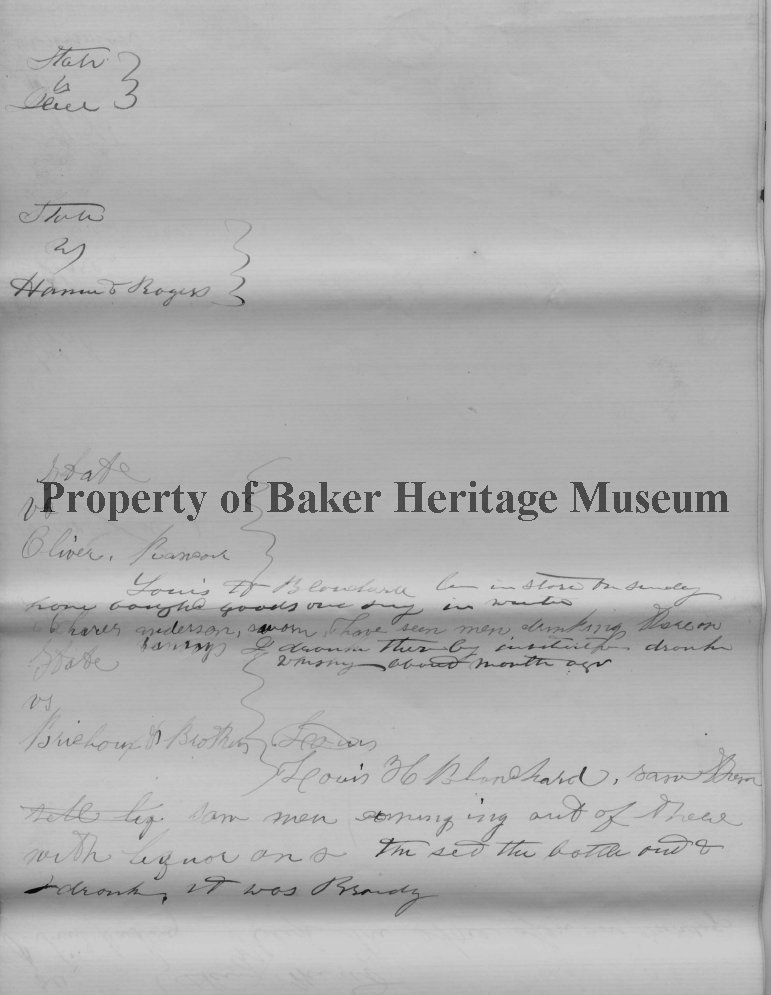 State
vs
State
vs
Rogers
State
Property of Baker Heritage Museum
vs
Oliver. Ransom
Louis H Blanchard in store on sunday
have bought goods one day in winter
anderson, sworn I have seen men drinking there on
sundays I drank there by invitation drank
State
whiskey about month ago
vs
& Brother Louis
Louis H Blanchard, saw them
sell liq. saw men coming ing out of there
with liquor on & the set the bottle out &
I drank, it was Brandy